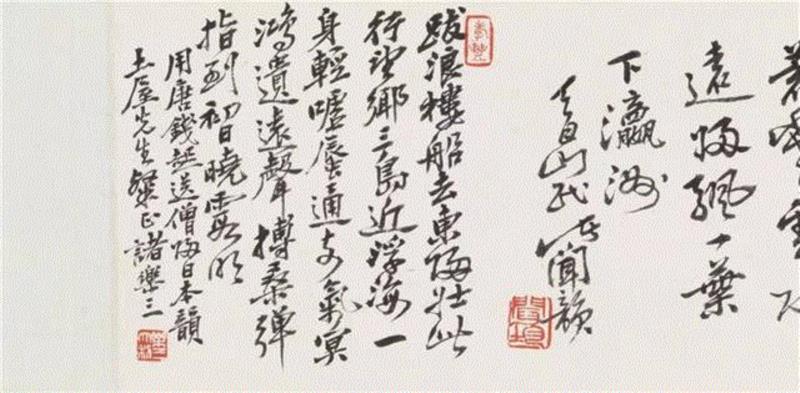 遠歸飄一葉
下瀛洲
山民聞韻
跋浪樓船去東歸壯此
行望鄉三島近浮海一
身輕噓蜃通氣冥
鴻遺遠聲搏桑彈
指到初日曉霞明
用唐錢起送僧歸日本韻
土屋先生粲正諸樂三